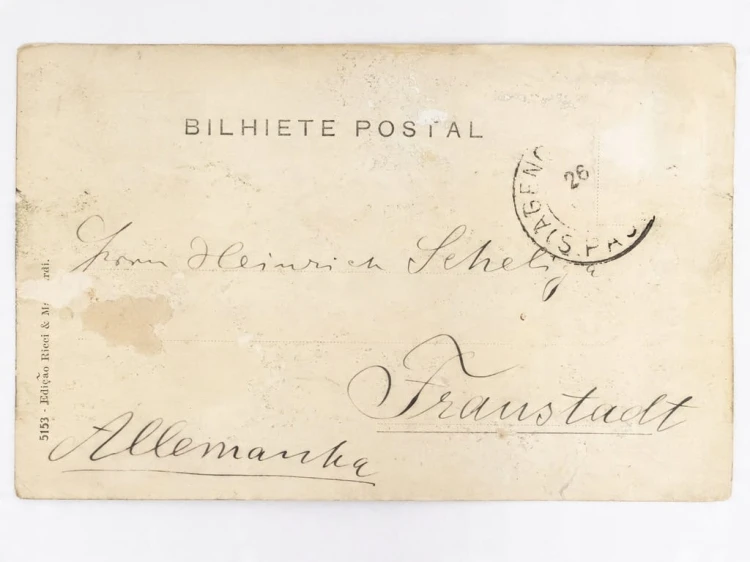 BILHIETE POSTAL
AGENC
26
(S. PAU
Herrn Heinrich Scheliga
Fraustadt
Allemanha
5153 - Edição Ricci &